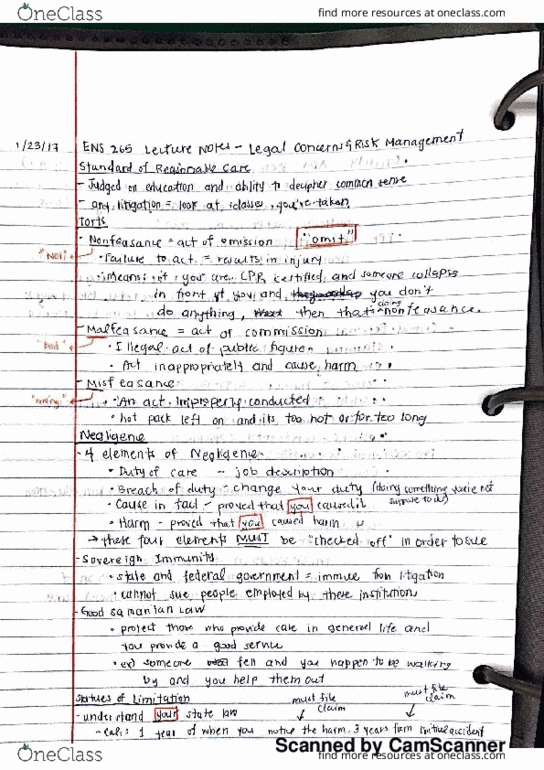 OneClass
find more resources at oneclass.com
1/23/17 ENS 265 Lecture Notes - Legal Concerns & Risk Management
Standard of Reasonable Care
- Judged on education and ability to decipher common sense
- any litigation = look at classes you've taken
Torts
- Nonfeasance = act of omission "omit"
"Not"
• Failure to act = results in injury
• Means: if you are CPR certified and someone collapses
in front of you and you don't
do anything, then that's doing nonfeasance.
- Malfeasance = act of commission
"bad"
• Illegal act of public figure
• Act inappropriately and cause harm
- Misfeasance
"wrong"
• An act improperly conducted
• hot pack left on and its too hot or for too long
Negligence
- 4 elements of Negligence
• Duty of care - job description
• Breach of duty - change your duty (doing something you're not
suppose to do)
• Cause in fact - proved that you caused it
• Harm - proved that you caused harm
→ these four elements MUST be "checked off" in order to sue
- Sovereign Immunity
• state and federal government = immune from litigation
• cannot sue people employed by these institution
- Good samaritan Law
• protect those who provide care in general life and
you provide a good service
• ex) someone fell and you happen to be walking
by and you help them out
Statues of Limitation
must file claim
must file claim
- understand your state law
- Cali: 1 year of when you notice the harm. 3 years from initial accident
Scanned by CamScanner
OneClass
find more resources at oneclass.com